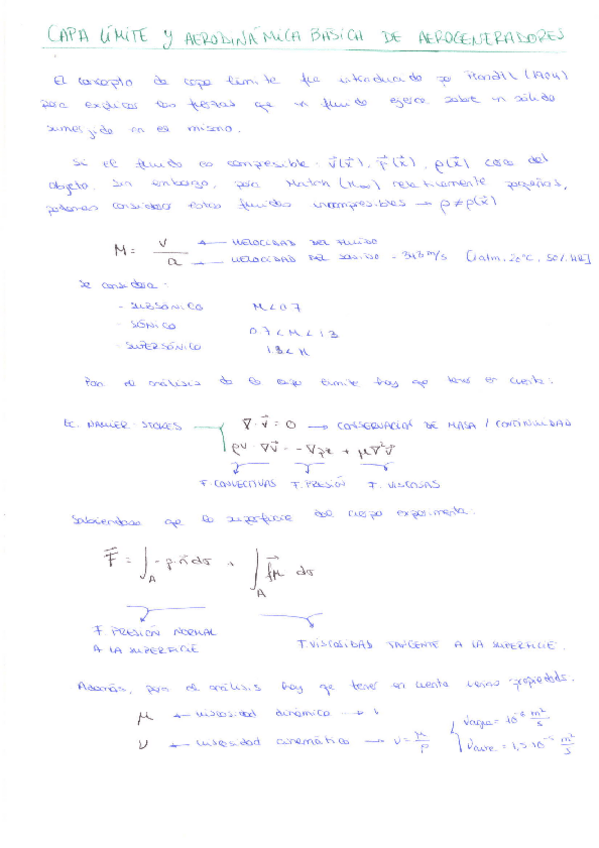 CAPA LÍMITE Y AERODINÁMICA BÁSICA DE AEROGENERADORES
El concepto de capa límite fue introducido por Prandtl (1904)
para explicar las fuerzas que un fluido ejerce sobre un sólido
sumergido en el mismo.
Si el fluido es compresible v⃗(x⃗), p⃗(x⃗), ρ(x⃗) cerca del
objeto. Sin embargo, para Match (M∞) relativamente pequeños,
podemos considerar estos fluidos incompresibles → ρ≠ρ(x⃗)
M = v/a ← VELOCIDAD DEL FLUIDO
← VELOCIDAD DEL SONIDO = 343 m/s [1atm, 20ºC, 50% HR]
Se considera:
- SUBSÓNICO M<0.7
- SÓNICO 0.7<M<1.3
- SUPERSÓNICO 1.3<M
Para el análisis de la capa límite hay que tener en cuenta:
EC. NAVIER-STOKES ∇·v⃗ = 0 → CONSERVACIÓN DE MASA / CONTINUIDAD
ρv·∇v⃗ = -∇p + μ∇²v⃗
F. CONVECTIVAS F. PRESIÓN F. VISCOSAS
Sabiendo que la superficie del cuerpo experimenta:
F⃗ = ∫A -p·n⃗ dσ + ∫A f⃗μ dσ
F. PRESIÓN NORMAL
A LA SUPERFICIE
F. VISCOSIDAD TANGENTE A LA SUPERFICIE.
Además, para el análisis hay que tener en cuenta varias propiedades.
μ ← viscosidad dinámica →
ν ← viscosidad cinemática → ν = μ/ρ
νagua = 10⁻⁶ m²/s
νaire = 1,5·10⁻⁵ m²/s